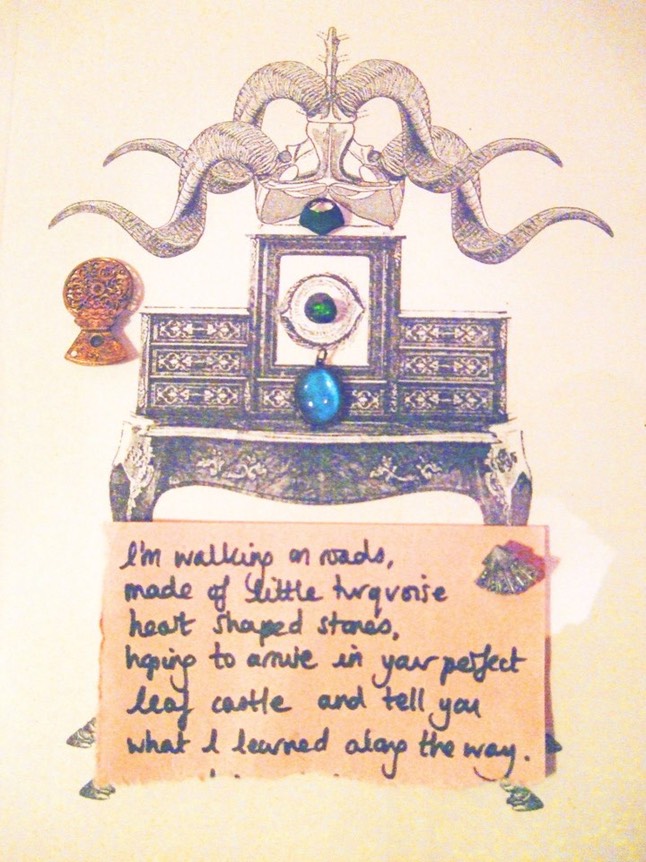 I'm walking on roads,
made of little turqvoise
heart shaped stones,
hoping to arrive in your perfect
leaf castle and tell you
what I learned along the way.